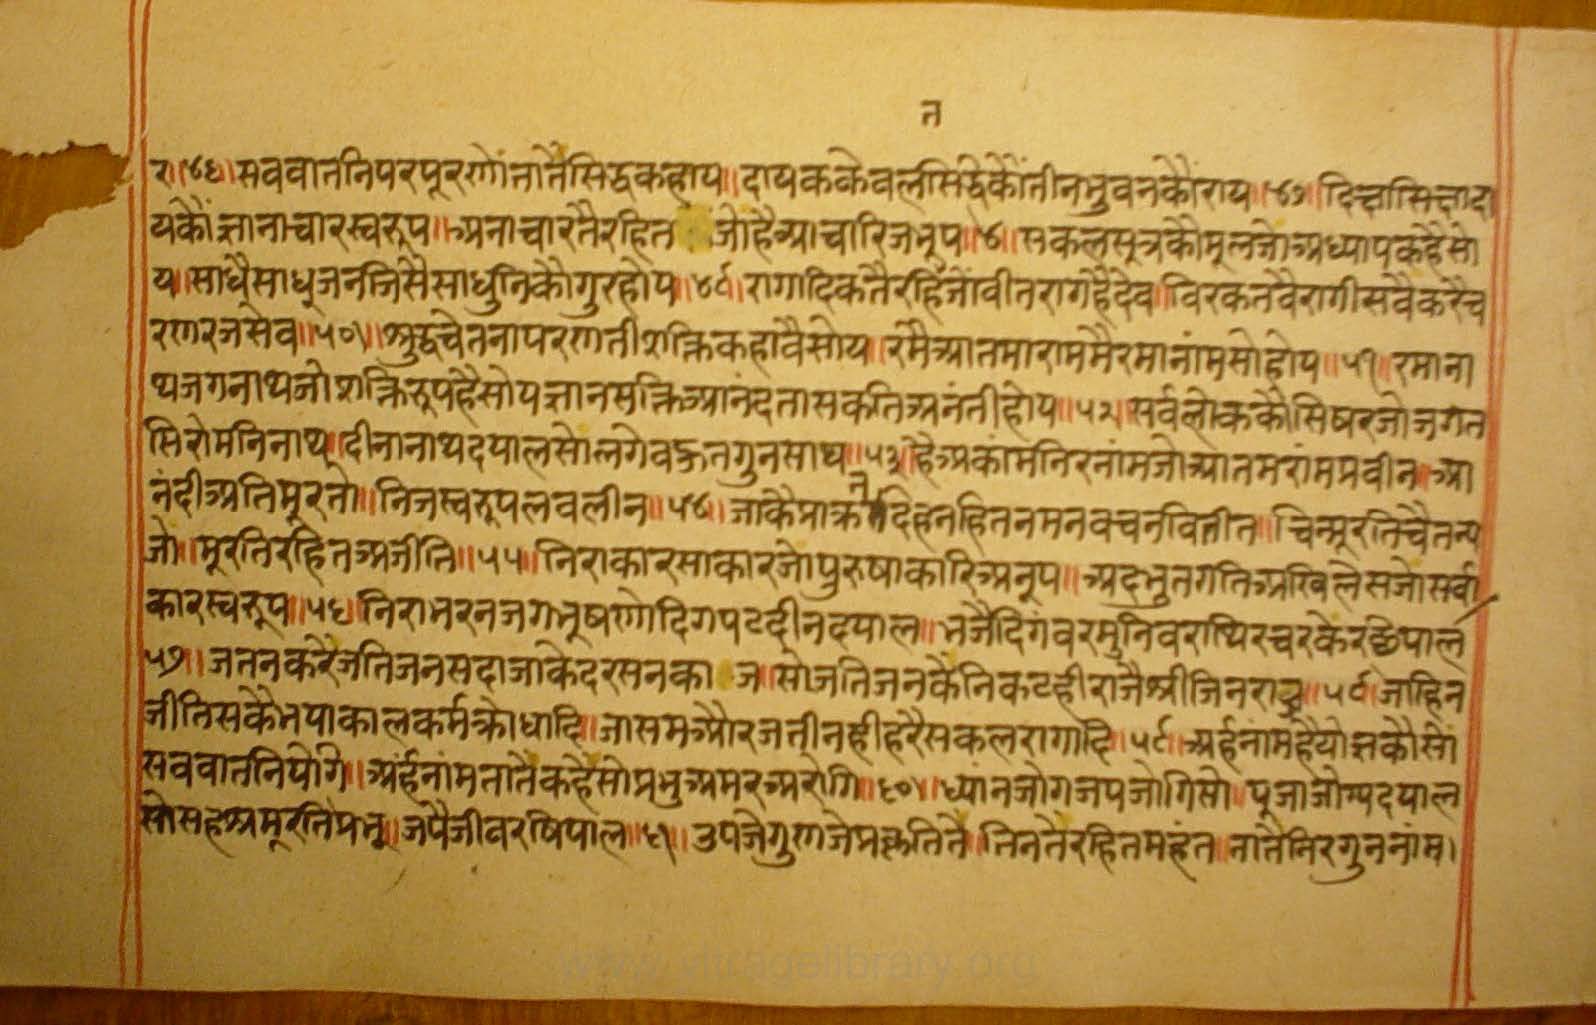 त
रा।४६।सववातनिपरपूरणोंतातैसिद्धकहाय॥दायककेवलसिद्धिकौंतीनभुवनकौराय॥४७॥दिक्षासिक्षादा
यकौंज्ञानाचारस्वरूप॥अनाचारतैरहित जोहैआचारिजनूप॥४८॥सकलसूत्रकौमूलजोअध्यापकहैसो
य॥साधैसाधूजनजिसैसाधुनिकौगुरहोय॥४९।रागादिकतैरहिजोवीतरागहैदेव॥विरकतवैरागीसवैकरैच
रणरजसेव॥५०॥शुद्धचेतनापरणतीशक्तिकहावैसोय॥रमैआतमाराममैरमानांमसोहोय॥५१॥रमाना
थजगनाथजोशक्तिरूपहैसोयज्ञानसक्तिआनंदतासकतिअनंतीहोय॥५२॥सर्वलोककौसिषरजोजगत
सिरोमनिनाथ॥दीनानाथदयालसोलगेवहुतगुनसाथ॥५३॥हैअकांमनिरनांमजोआतमरांमप्रवीन॥आ
नंदीअतिमूरतो॥निजस्वरूपलवलीन॥५४॥जाकैप्राक्रतदेहनहितनमनवचनवितीत॥चिन्मूरतिचैतन्य
जो॥मूरतिरहितअजीति॥५५॥निराकारसाकारजोपुरुषाकारिअनूप॥अदभुतगतिअखिलेसजोसर्वा
कारस्वरूप॥५६॥निराभरनजगभूषणोदिगपटदीनदयाल॥भजैदिगंवरमुनिवराथिरचरकेरछिपाल
५७॥जतनकरैजतिजनसदाजाकेदरसनका ज॥सोजतिजनकैनिकटहीराजैश्रीजिनराज॥५८॥जाहिन
जीतिसकैभयाकालकर्मक्रोधादि॥जासमऔरजतीनहीहरैसकलरागादि॥५९॥अर्हनांमहैयोज्ञकौसों
सववातनियोगि॥अर्हनांमतातैकहैंसोप्रभुअमरअरोगि॥६०॥ध्यांनजोगजपजोगिसो॥पूजाजोग्यदयाल
सोसहश्रमूरतिप्रभू॥जपैजीवरषिपाल॥६१॥उपजेगुणजेप्रकृतितै॥तिनतैरहितमहंत॥तातैनिरगुननांम।